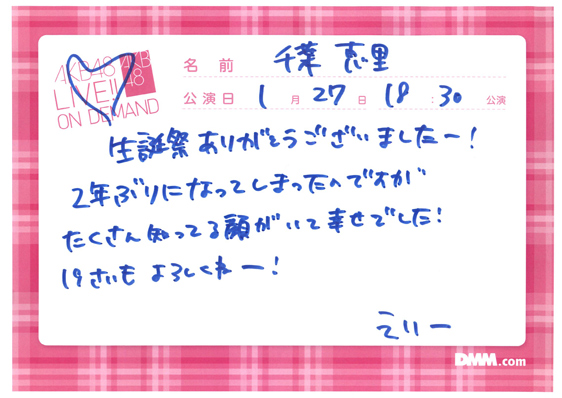 AKB48
LIVE!!
ON DEMAND
AKB
48
名前 千葉 恵里
公演日 1月27日 18:30 公演
生誕祭ありがとうございましたー!
2年ぶりになってしまったのですが
たくさん知ってる顔がいて幸せでした!
19さいも よろしくねー!
えりー
DMM.com